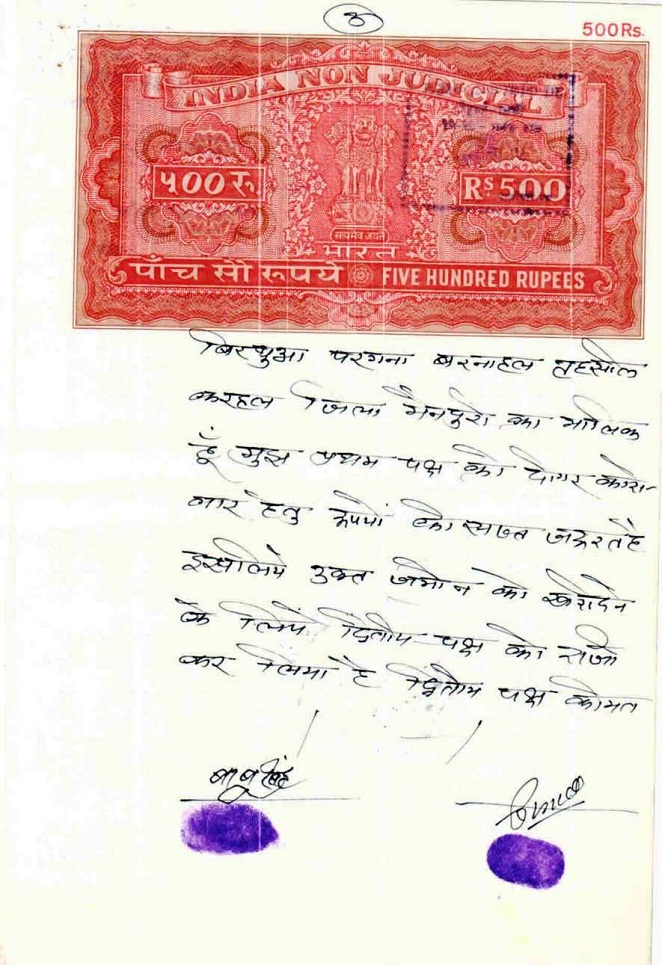 500Rs.
INDIA NON JUDICIAL
५00 रु.
Rs 500
सत्यमेव जयते
भारत
पाँच सौ रूपये FIVE HUNDRED RUPEES
परगना बरनाहल तहसील
करहल जिला मैनपुरी का मालिक
हूँ मुझ प्रथम पक्ष को दीगर कारो-
बार हेतु रूपयों की सख्त जरूरत है
इसलिये उक्त जमीन को खरीदने
के लिये द्वितीय पक्ष को राजी
कर लिया है द्वितीय पक्ष कीमत
बाबू सिंह